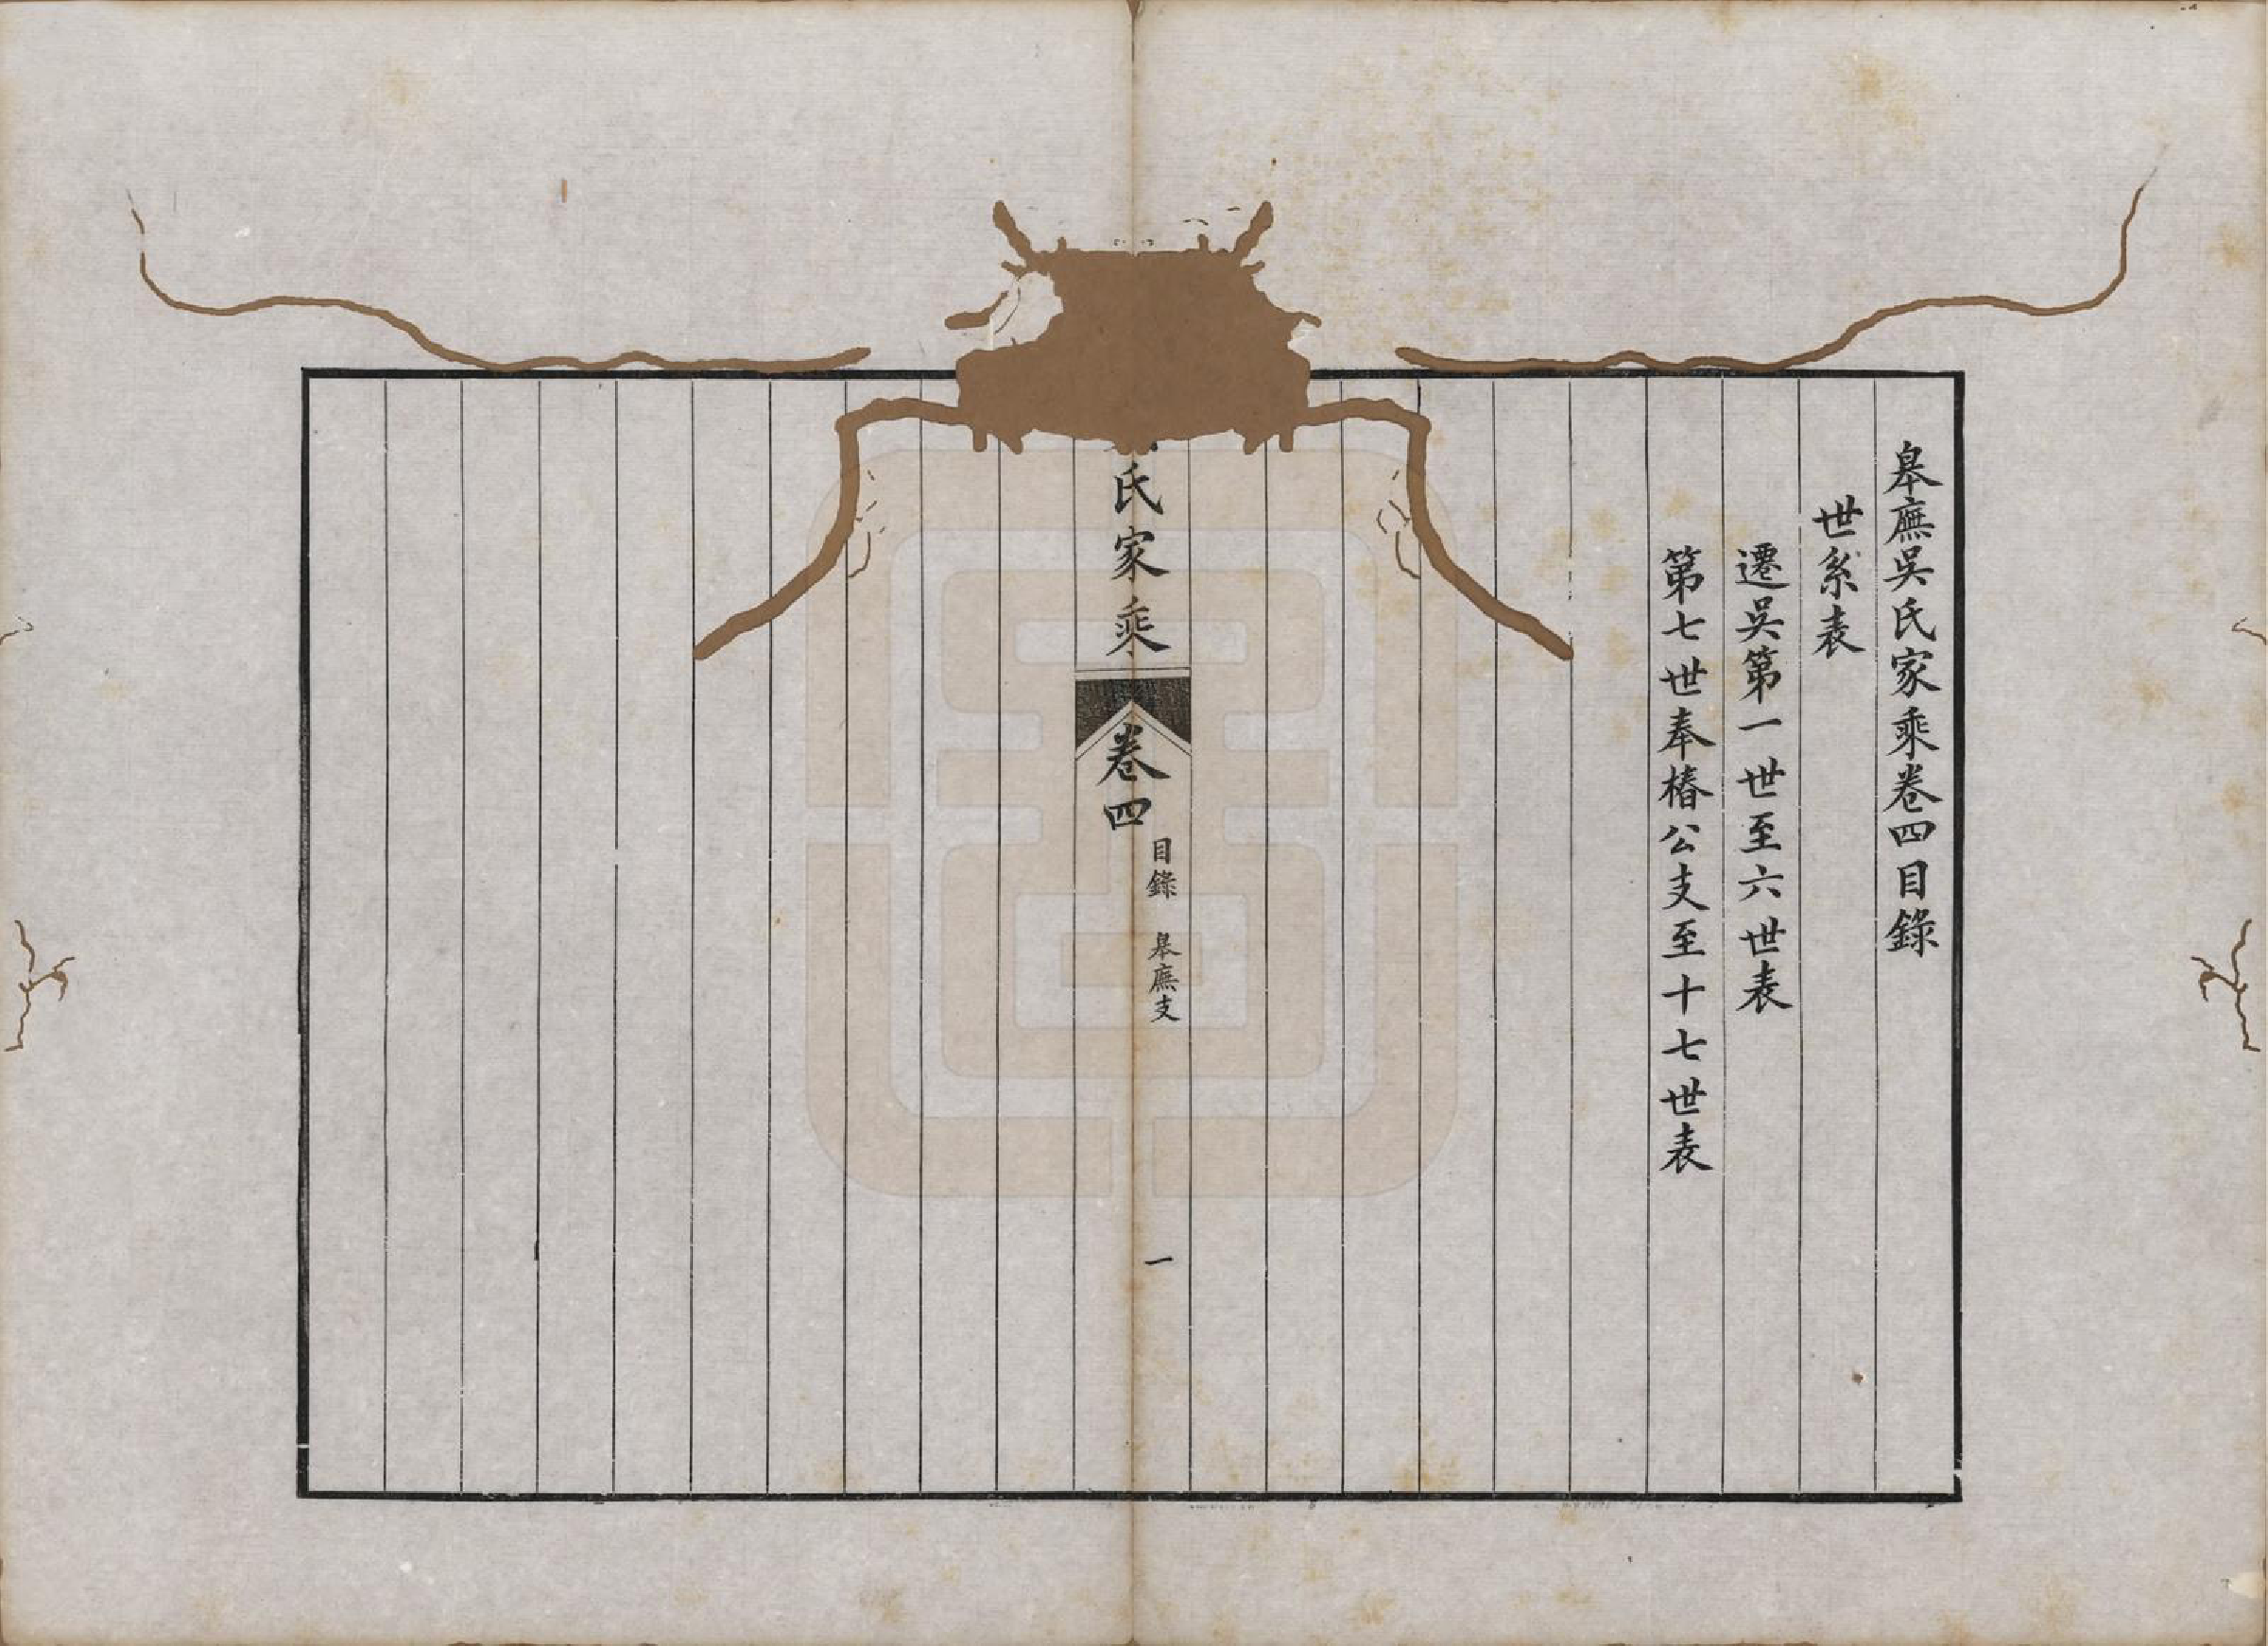 皋廡吳氏家乘卷四目錄
世系表
遷吳第一世至六世表
第七世奉椿公支至十七世表
氏家乘
卷四
目錄 皋廡支
一